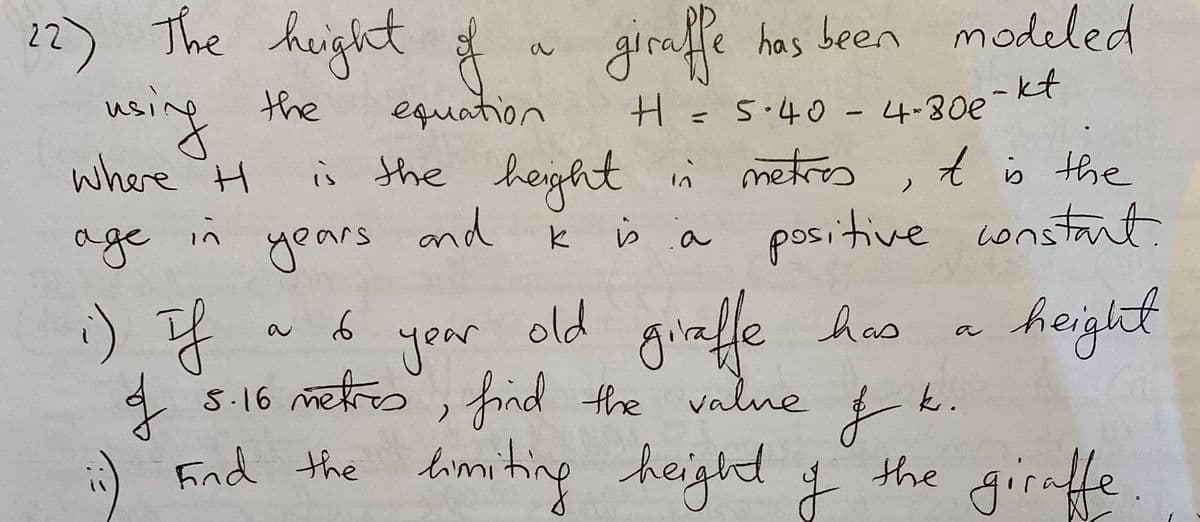 22) The height of a giraffe has been modeled
using the equation H = 5.40 - 4.80e^-kt
where H is the height in metres, t is the
age in years and k is a positive constant.
i) If a 6 year old giraffe has a height
of 5.16 metres, find the value of k.
ii) Find the limiting height of the giraffe.